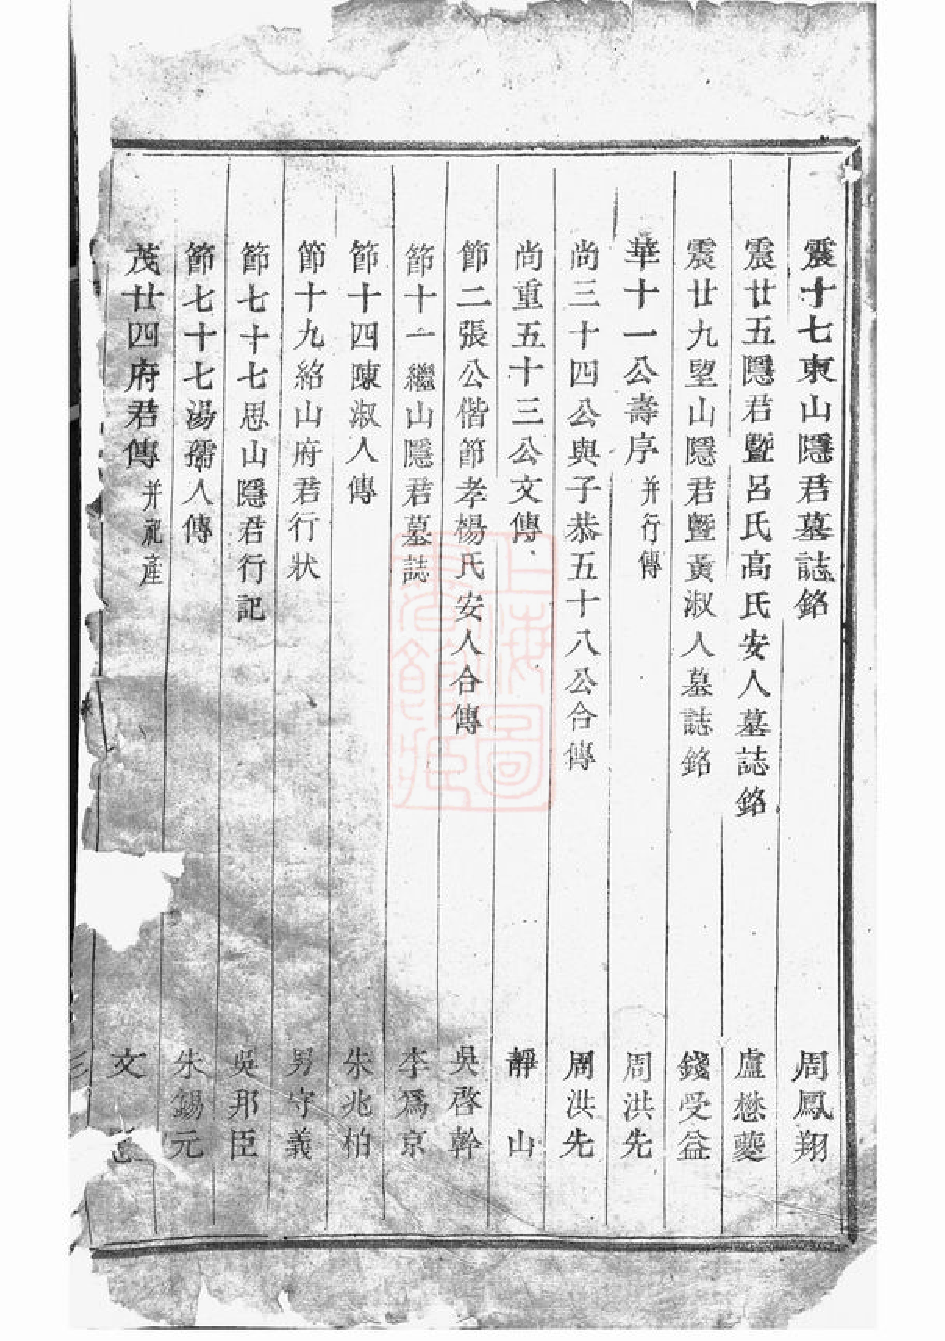 震十七東山隱君墓誌銘 周鳳翔
震廿五隱君曁呂氏高氏安人墓誌銘 盧懋藂
震廿九堅山隱君曁黃淑人墓誌銘 錢受益
華十一公壽序 并行傳 周洪先
尚三十四公與子恭五十八公合傳 周洪先
尚重五十三公文傳 靜山
節二張公偕節孝楊氏安人合傳 吳啓幹
節十一繼山隱君墓誌 李爲京
節十四陳淑人傳 朱兆柏
節十九絡山府君行狀 男守義
節七十七思山隱君行記 吳邦臣
節七十七湯孺人傳 朱錫元
茂廿四府君傳 并祀產 文
上海圖書館藏